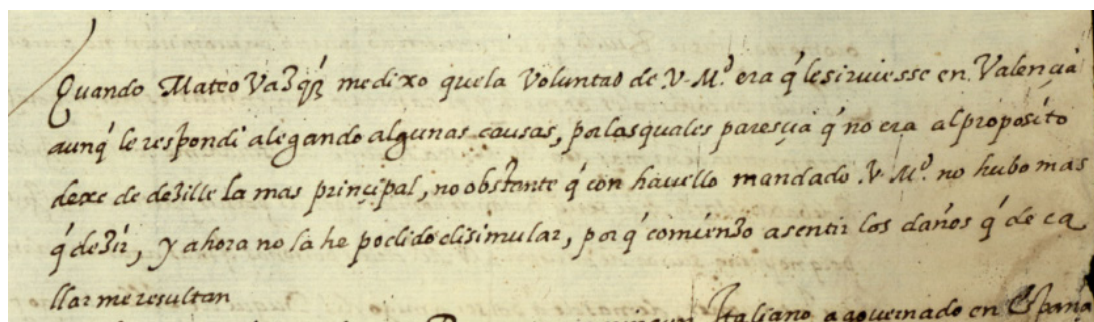 Quando Mateo Vazqz me dixo que la Voluntad de V. M.d era q́ le siruiesse en Valençia
aunq́ le respondi alegando algunas causas, por las quales paresçia q́ no era al proposito
dexe de dezille la mas prinçipal, no obstante q́ con havello mandado V. M.d no hubo mas
q́ dezir, y ahora no la he podido disimular, por q́ comienzo a sentir los daños q́ de ca
llar me resultan
Italiano a gouernado en España